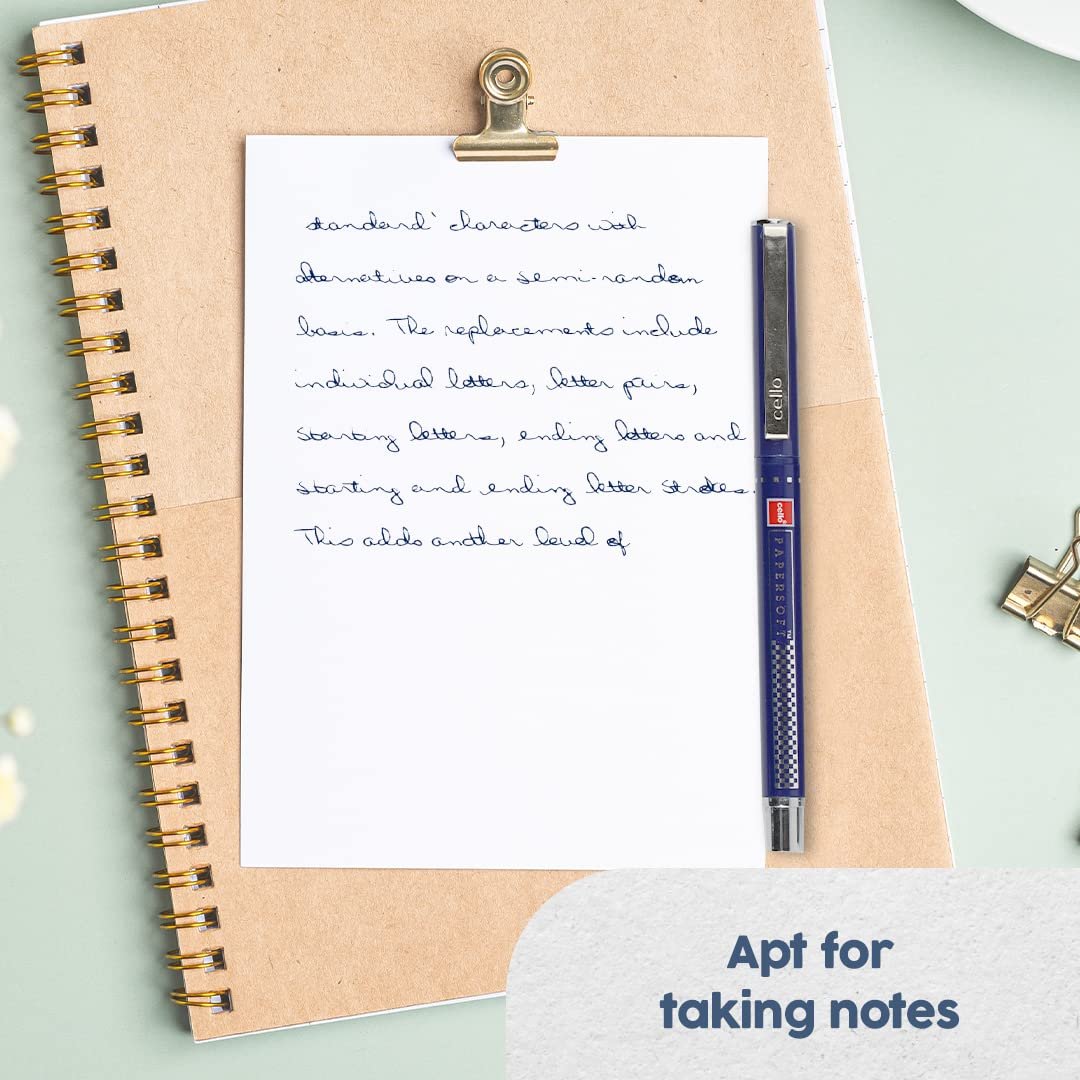 standard' characters with
alternatives on a semi-random
basis. The replacements include
individual letters, letter pairs,
starting letters, ending letters and
starting and ending letter strokes.
This adds another level of
cello
cello
PAPERSOFT™
Apt for
taking notes